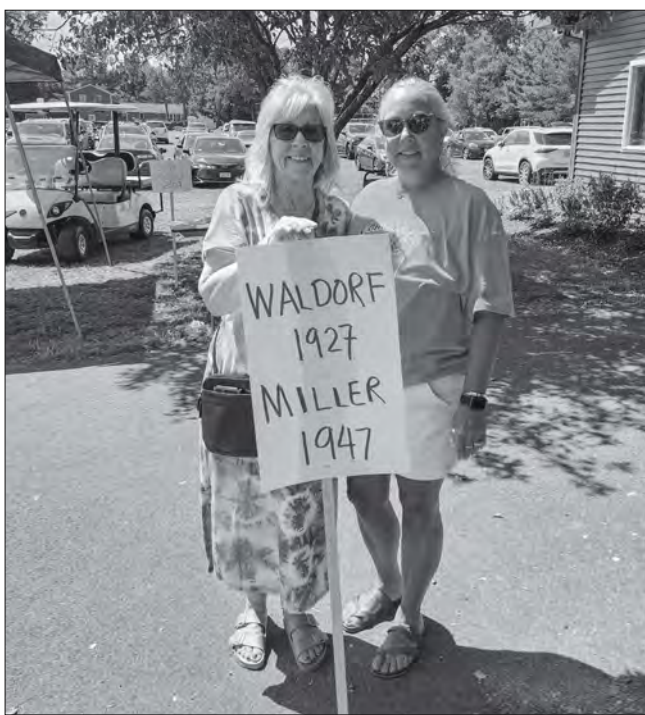 WALDORF
1927
MILLER
1947